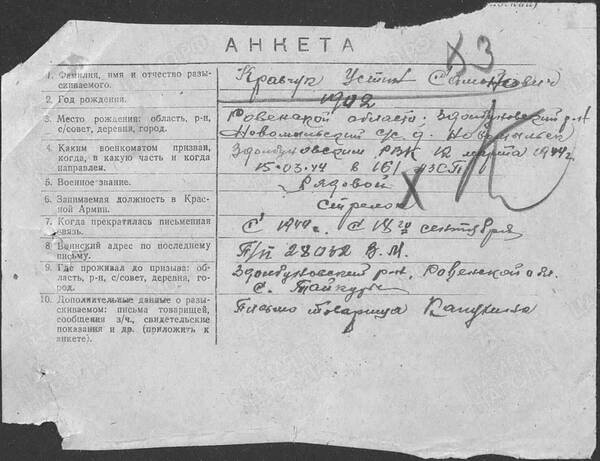 АНКЕТА
К3
1. Фамилия, имя и отчество разы-
скиваемого.
Кравчук Устин Самойлович
2. Год рождения.
1902
3. Место рождения: область, р-н,
с/совет, деревня, город.
Ровенской области: Здолбуновский р-н
Новомыльский с/с д. Новомыльск
4. Каким военкоматом призван,
когда, в какую часть и когда
направлен.
Здолбуновским РВК 12 марта 1944г.
15.03.44 в 161 АЗСП
5. Военное звание.
Рядовой
6. Занимаемая должность в Крас-
ной Армии.
Стрелок
7. Когда прекратилась письменная
связь.
С 1944г. с 18го сентября
8. Воинский адрес по последнему
письму.
П/П 28042 В.М.
9. Где проживал до призыва: об-
ласть, р-н, с/совет, деревня, го-
род.
Здолбуновский р-н, Ровенской обл.
с. Тайкуры
10. Дополнительные данные о разы-
скиваемом: письма товарищей,
сообщения з/ч., свидетельские
показания и др. (приложить к
анкете).
Письмо товарища